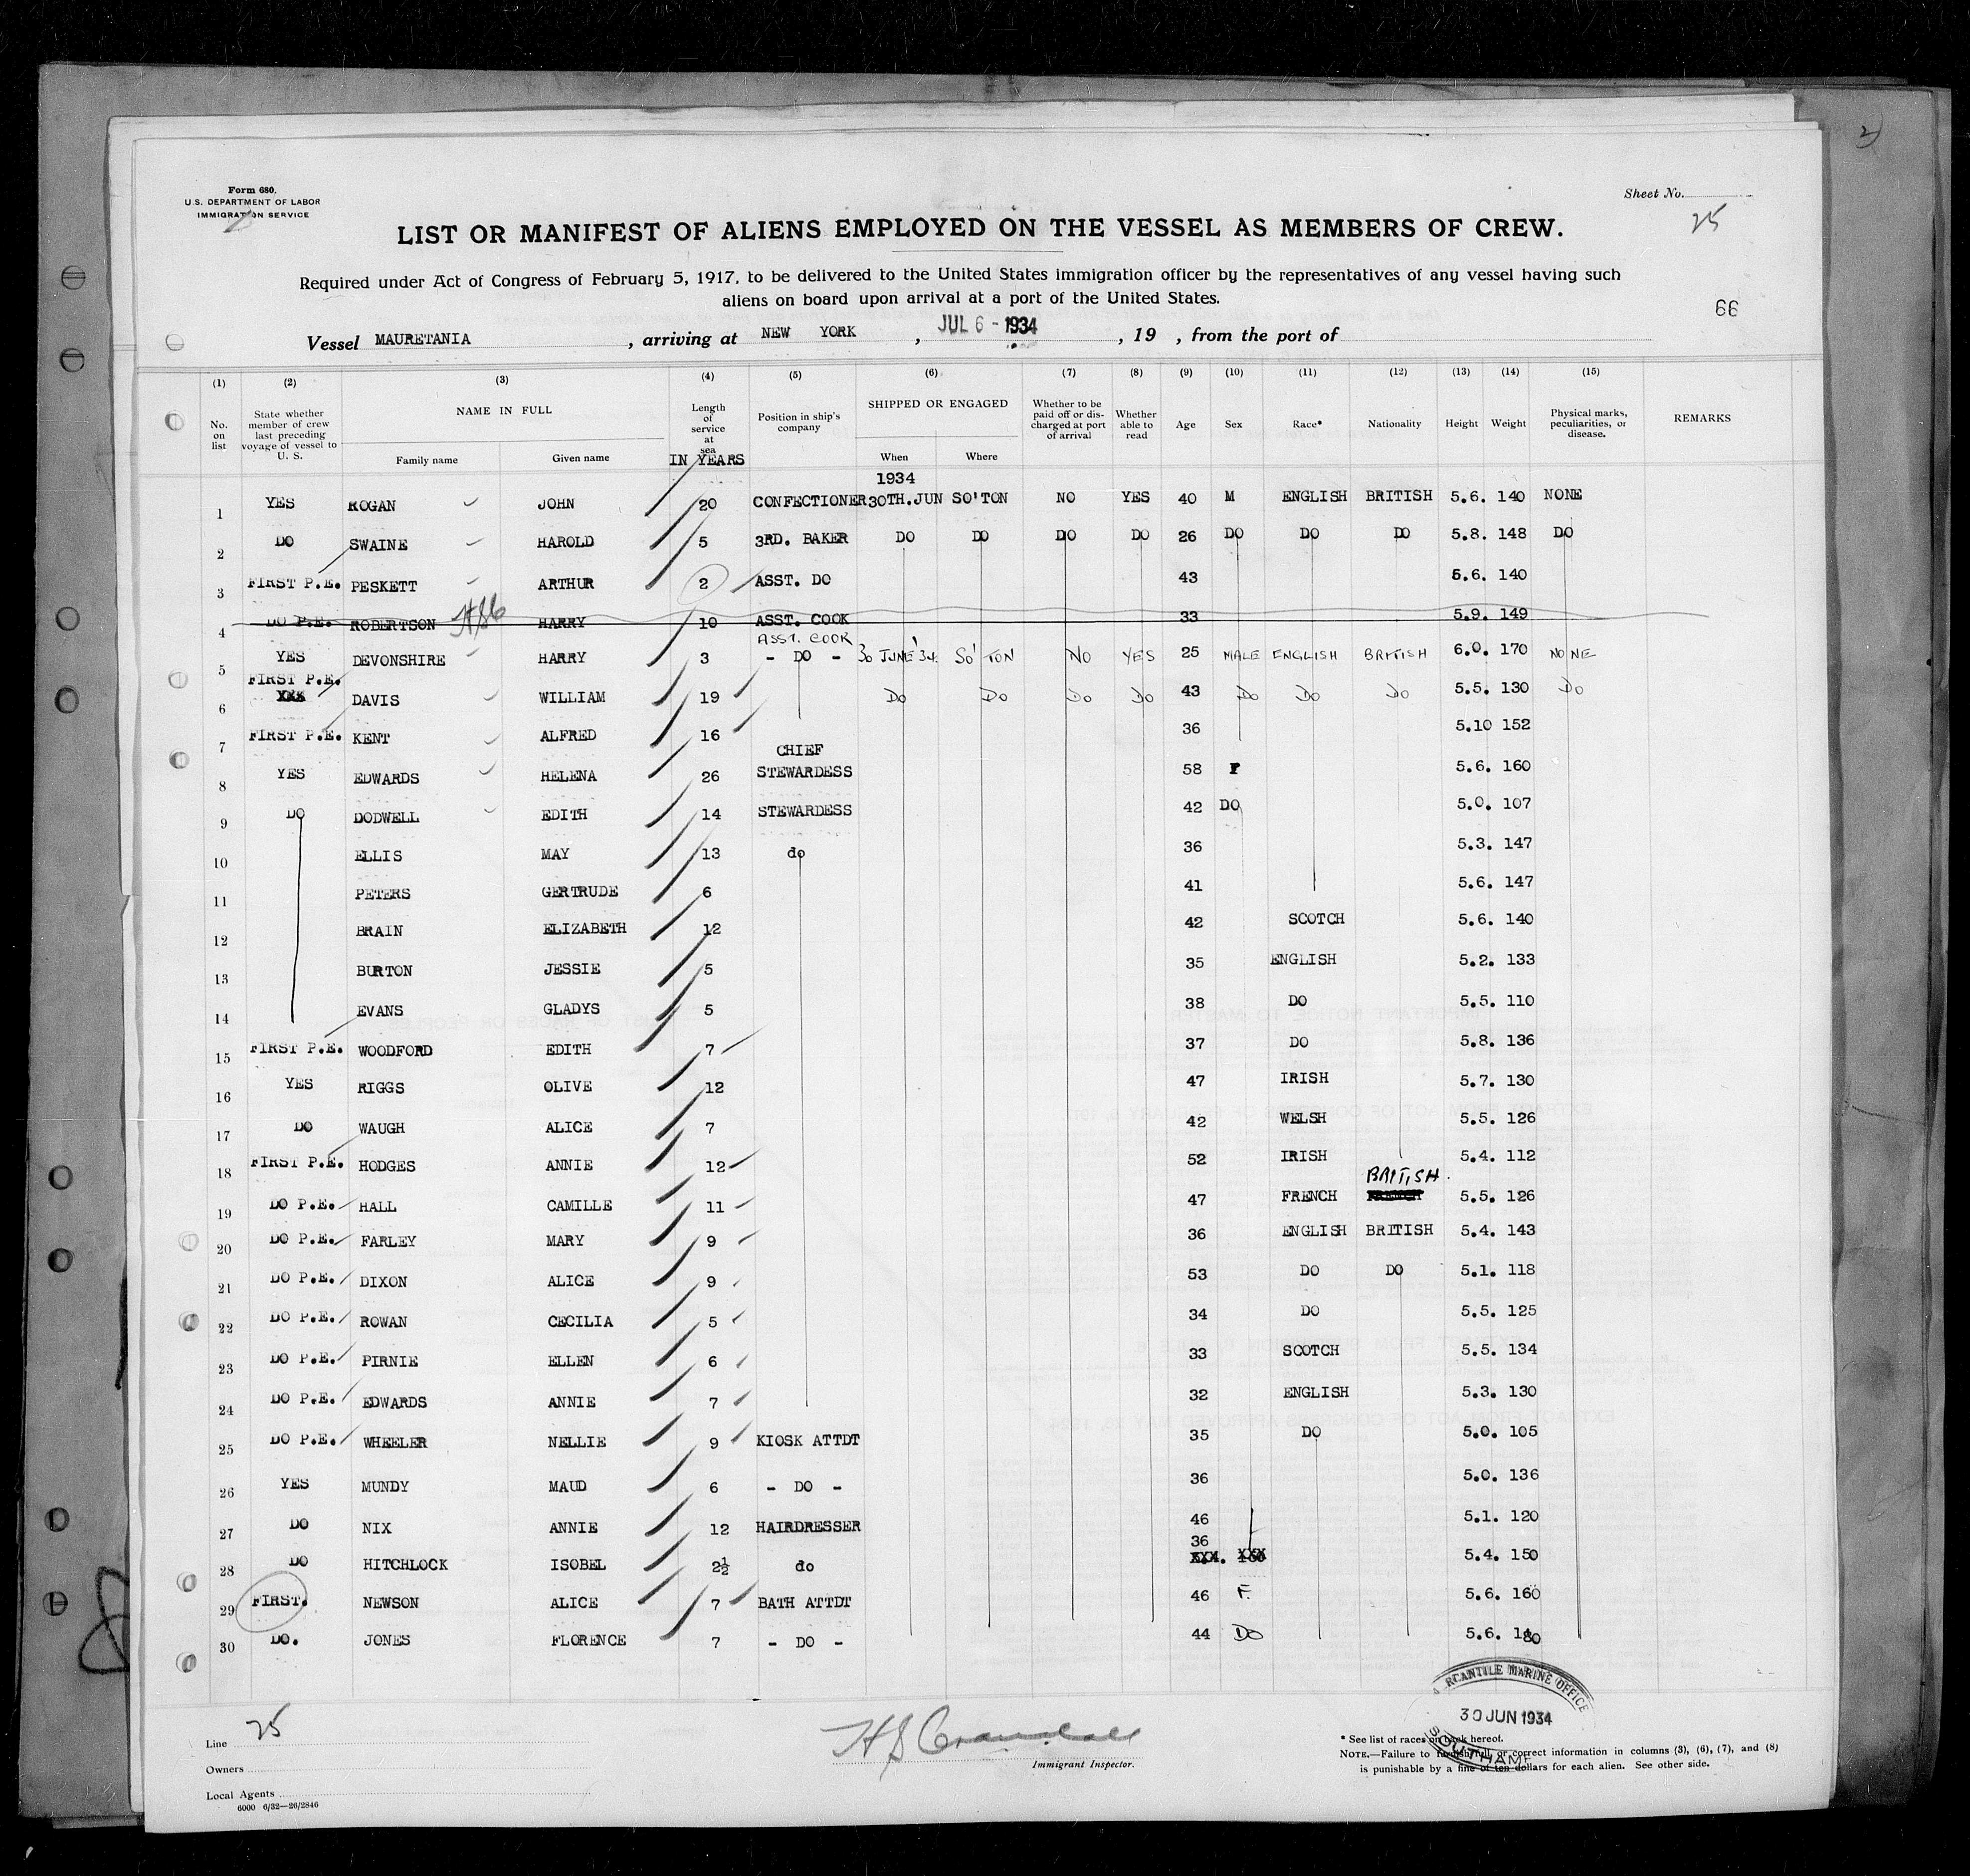 Form 680.
U.S. DEPARTMENT OF LABOR
IMMIGRATION SERVICE
Sheet No.
25
LIST OR MANIFEST OF ALIENS EMPLOYED ON THE VESSEL AS MEMBERS OF CREW.
Required under Act of Congress of February 5, 1917, to be delivered to the United States immigration officer by the representatives of any vessel having such
aliens on board upon arrival at a port of the United States.
66
Vessel MAURETANIA, arriving at NEW YORK, JUL 6 - 1934, 19 , from the port of
(1) (2) (3) (4) (5) (6) (7) (8) (9) (10) (11) (12) (13) (14) (15)
No. on list State whether member of crew last preceding voyage of vessel to U. S. NAME IN FULL Family name Given name Length of service at sea IN YEARS Position in ship's company SHIPPED OR ENGAGED When Where Whether to be paid off or discharged at port of arrival Whether able to read Age Sex Race* Nationality Height Weight Physical marks, peculiarities, or disease. REMARKS
1934
1 YES ROGAN JOHN 20 CONFECTIONER 30TH.JUN SO'TON NO YES 40 M ENGLISH BRITISH 5.6. 140 NONE
2 DO SWAINE HAROLD 5 3RD. BAKER DO DO DO DO 26 DO DO DO 5.8. 148 DO
3 FIRST P.E. PESKETT ARTHUR 2 ASST. DO 43 5.6. 140
4 DO P.E. ROBERTSON HARRY 10 ASST. COOK 33 5.9. 149
ASST. COOK
5 YES DEVONSHIRE HARRY 3 - DO - 30 JUNE '34. SO'TON NO YES 25 MALE ENGLISH BRITISH 6.0. 170 NONE
FIRST P.E.
6 YES DAVIS WILLIAM 19 DO DO DO DO 43 DO DO DO 5.5. 130 DO
7 FIRST P.E. KENT ALFRED 16 36 5.10 152
8 YES EDWARDS HELENA 26 CHIEF STEWARDESS 58 F 5.6. 160
9 DO DODWELL EDITH 14 STEWARDESS 42 DO 5.0. 107
10 ELLIS MAY 13 do 36 5.3. 147
11 PETERS GERTRUDE 6 41 5.6. 147
12 BRAIN ELIZABETH 12 42 SCOTCH 5.6. 140
13 BURTON JESSIE 5 35 ENGLISH 5.2. 133
14 EVANS GLADYS 5 38 DO 5.5. 110
15 FIRST P.E. WOODFORD EDITH 7 37 DO 5.8. 136
16 YES RIGGS OLIVE 12 47 IRISH 5.7. 130
17 DO WAUGH ALICE 7 42 WELSH 5.5. 126
18 FIRST P.E. HODGES ANNIE 12 52 IRISH 5.4. 112
19 DO P.E. HALL CAMILLE 11 47 FRENCH BRITISH. 5.5. 126
20 DO P.E. FARLEY MARY 9 36 ENGLISH BRITISH 5.4. 143
21 DO P.E. DIXON ALICE 9 53 DO DO 5.1. 118
22 DO P.E. ROWAN CECILIA 5 34 DO 5.5. 125
23 DO P.E. PIRNIE ELLEN 6 33 SCOTCH 5.5. 134
24 DO P.E. EDWARDS ANNIE 7 32 ENGLISH 5.3. 130
25 DO P.E. WHEELER NELLIE 9 KIOSK ATTDT 35 DO 5.0. 105
26 YES MUNDY MAUD 6 - DO - 36 5.0. 136
27 DO NIX ANNIE 12 HAIRDRESSER 46 5.1. 120
28 DO HITCHLOCK ISOBEL 2½ do 36 5.4. 150
29 FIRST. NEWSON ALICE 7 BATH ATTDT 46 F. 5.6. 160
30 DO. JONES FLORENCE 7 - DO - 44 DO 5.6.
MERCANTILE MARINE OFFICE
30 JUN 1934
SOUTHAM
Line 25
Owners
Local Agents
6000 6/32—26/2846
H S Crandall
Immigrant Inspector.
* See list of races on back hereof.
NOTE.—Failure to furnish full or correct information in columns (3), (6), (7), and (8)
is punishable by a fine of ten dollars for each alien. See other side.